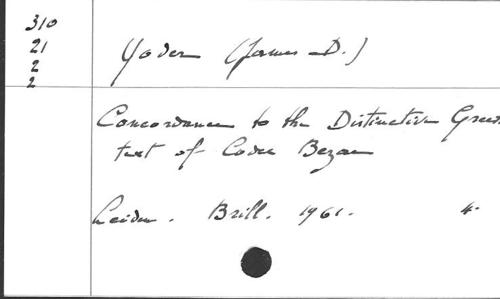 310
21
2
2
Yoder (James D.)
Concordance to the Distinctive Greek
text of Codex Bezae
Leiden. Brill. 1961. 4.